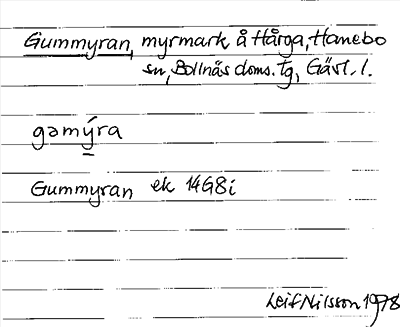 Gummyran, myrmark å Hårga, Hanebo
sn, Bollnäs doms. tg, Gävl. l.
gamý̱ra
Gummyran ek 14G8i
Leif Nilsson 1978